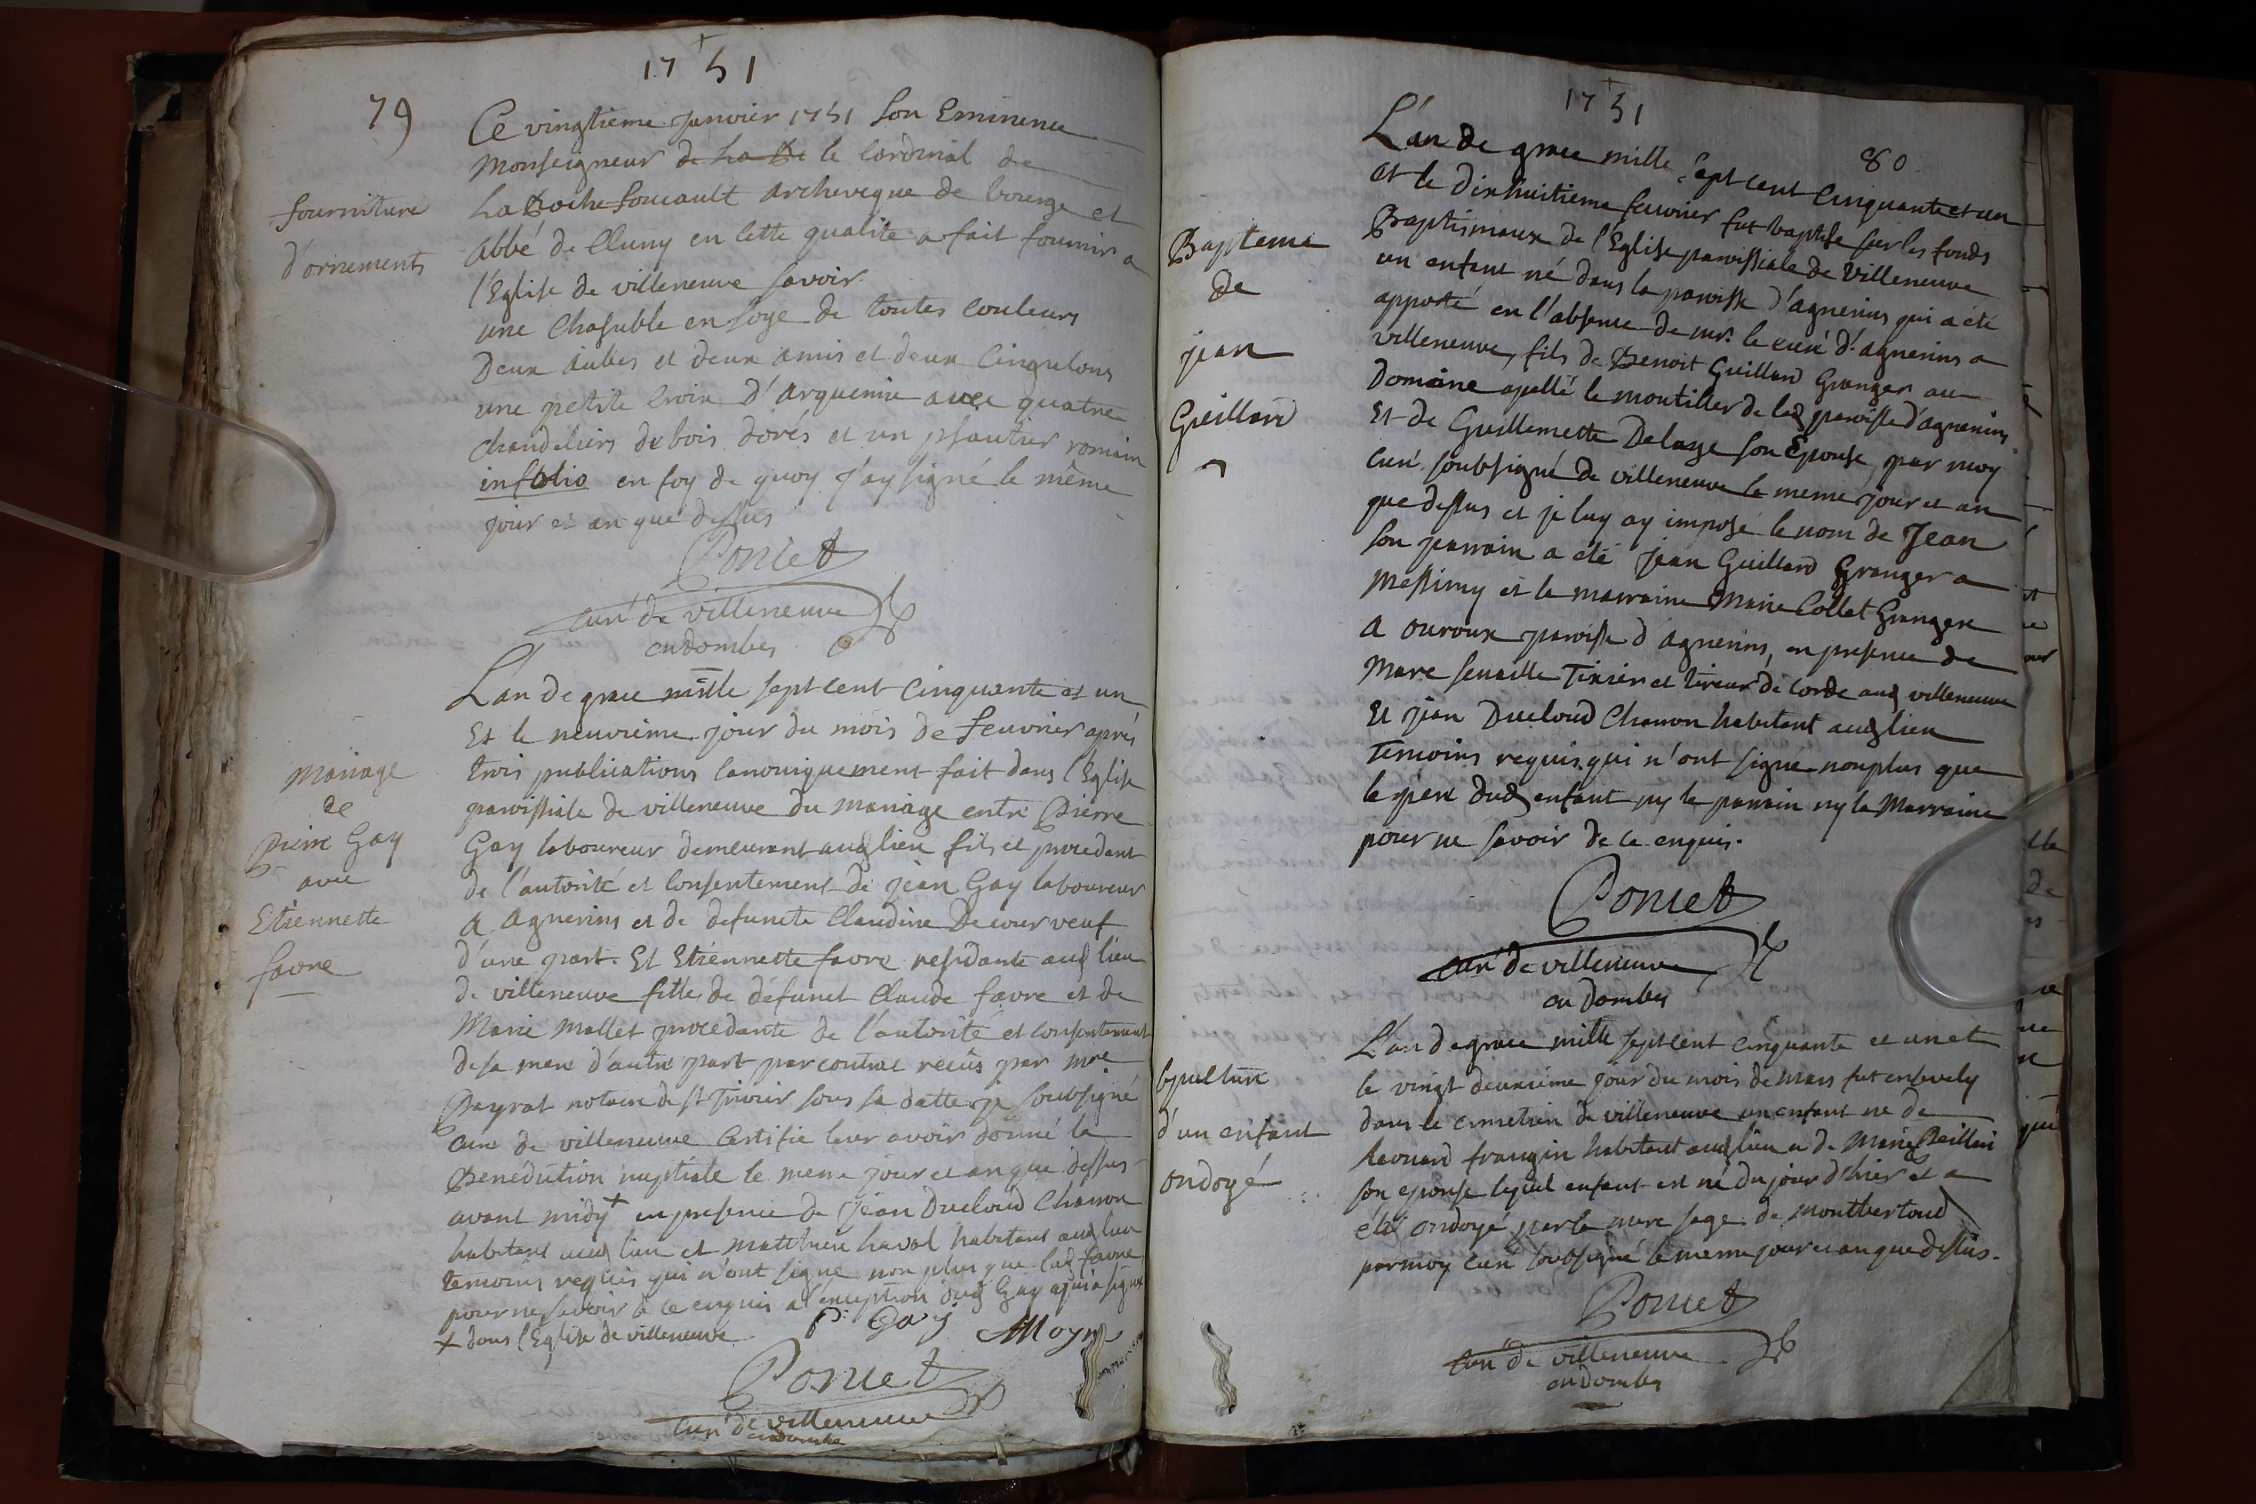 1751
79
Ce vingtieme janvier 1751 Son Eminence
Monseigneur de La Ro le Cardinal de
La Rochefoucault archeveque de bourge et
Abbé de Cluny en cette qualité a fait fournir a
l'Eglise de villeneuve savoir
une Chasuble en soye de toutes couleurs
Deux Aubes et deux amis et deux Cingulons
une petite Croix d'arquemie avec quatre
chandeliers de bois dorés et un psautier romain
infolio en foy de quoy j'ay signé le même
jour et an que dessus
Poncet
curé de villeneuve
en dombes
fourniture
d'ornements
L'an de grace mille sept cent cinquante et un
Et le neuvieme jour du mois de feuvrier après
trois publications canoniquement fait dans l'Eglise
paroissiale de villeneuve du mariage entre Pierre
Gay laboureur demeurant aud lieu fils et procedant
de l'autorité et consentement de jean Gay laboureur
a agnerins et de defuncte Claudine Decour veuf
d'une part. Et Etiennette favre residante aud lieu
de villeneuve fille de défunct Claude favre et de
Marie Mallet procedante de l'autorité et consentement
de sa mere d'autre part par contrat recûs par mre
Peyrat notaire de st Trivier sous sa datte je soubsigné
curé de villeneuve certifie leur avoir donné la
Benediction nuptiale le meme jour et an que dessus
avant midy + en presence de jean Ducloud Charron
habitant aud lieu et Matthieu laval habitant aud lieu
temoins requis qui n'ont signé non plus que lad favre
pour ne savoir de ce enquis a l'exception dud Gay qui a signé
+ dans l'Eglise de villeneuve
P. Gay Moyne
Poncet
curé de villeneuve
en dombe
Mariage
de
Pierre Gay
avec
Etiennette
favre
1751
80
L'an de grace mille sept cent cinquante et un
et le dixhuitieme feuvrier fut baptisé sur les fonds
Baptismaux de l'Eglise paroissiale de Villeneuve
un enfant né dans la paroisse d'agnerins qui a été
apporté en l'absence de mr. le curé d'agnerins a
villeneuve, fils de Benoit Guillard Granger au
Domaine apellé le montillier de lad paroisse d'agnerins
Et de Guillemette Delaye son Epouse, par moy
curé soubsigné de villeneuve le meme jour et an
que dessus et je luy ay imposé le nom de Jean
son parrain a été jean Guillard Granger a
Messimy et la marraine Marie Collet Grangere
a ouroux paroisse d'agnerins, en presence de
Marc senaille Tixier et tireur de corde aud villeneuve
Et jean Ducloud Charron habitant aud lieu
Temoins requis qui n'ont signé nonplus que
le père dud enfant ny le parrain ny la Marraine
pour ne savoir de ce enquis.
Poncet
curé de villeneuve
en Dombes
Bapteme
de
jean
Guillard
L'an de grace mille sept cent cinquante et un et
le vingt deuxième jour du mois de mars fut ensevely
dans le cimetiere de villeneuve un enfant né de
Leonard frangin habitant aud lieu et de Marie
son epouse lequel enfant est né du jour d'hier et a
été ondoyé par la mere sage de montbertoud
par moy curé soubsigné le meme jour et an que dessus.
Poncet
curé de villeneuve
en dombes
sepulture
d'un enfant
ondoyé